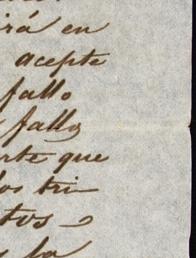 irá en
acepte
fallo
fallo
rte que
los tri
tos
la